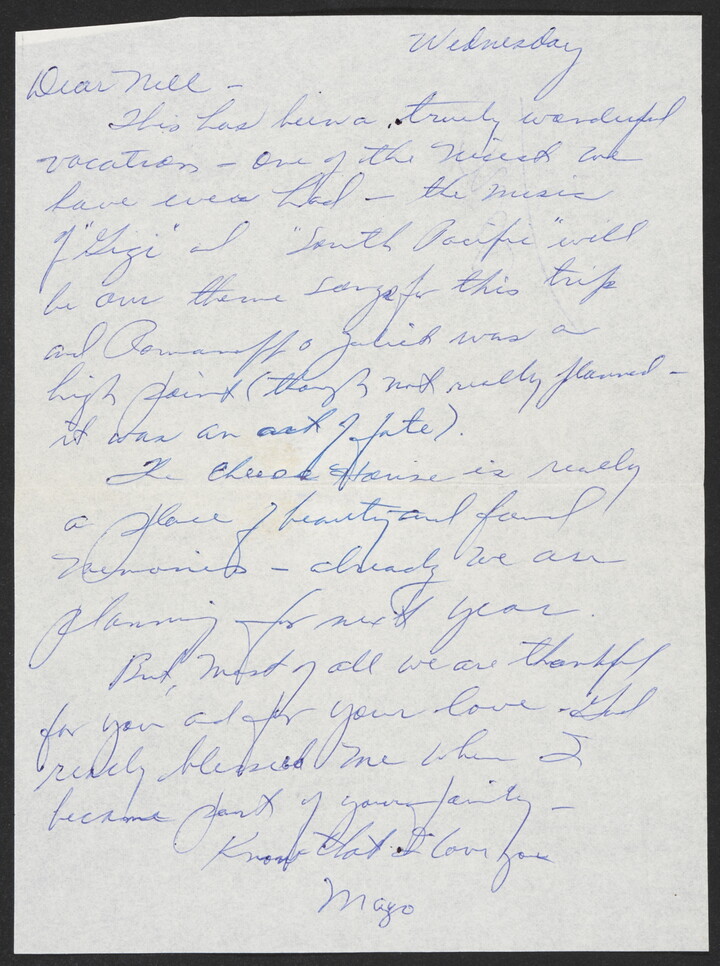 Wednesday
Dear Nell -
This has been a truely wonderful
vacation - one of the nicest we
have ever had - the music
of "Gigi" and "South Pacific" will
be our theme songs for this trip
and Romanoff & Juliet was a
high point (though not really planned -
it was an act of fate).
The Cheese House is really
a place of beauty and found
memories - already we are
planning for next year.
But, most of all we are thankful
for you and for your love - God
really blessed me when I
became part of your family -
Know that I love you
Mayo